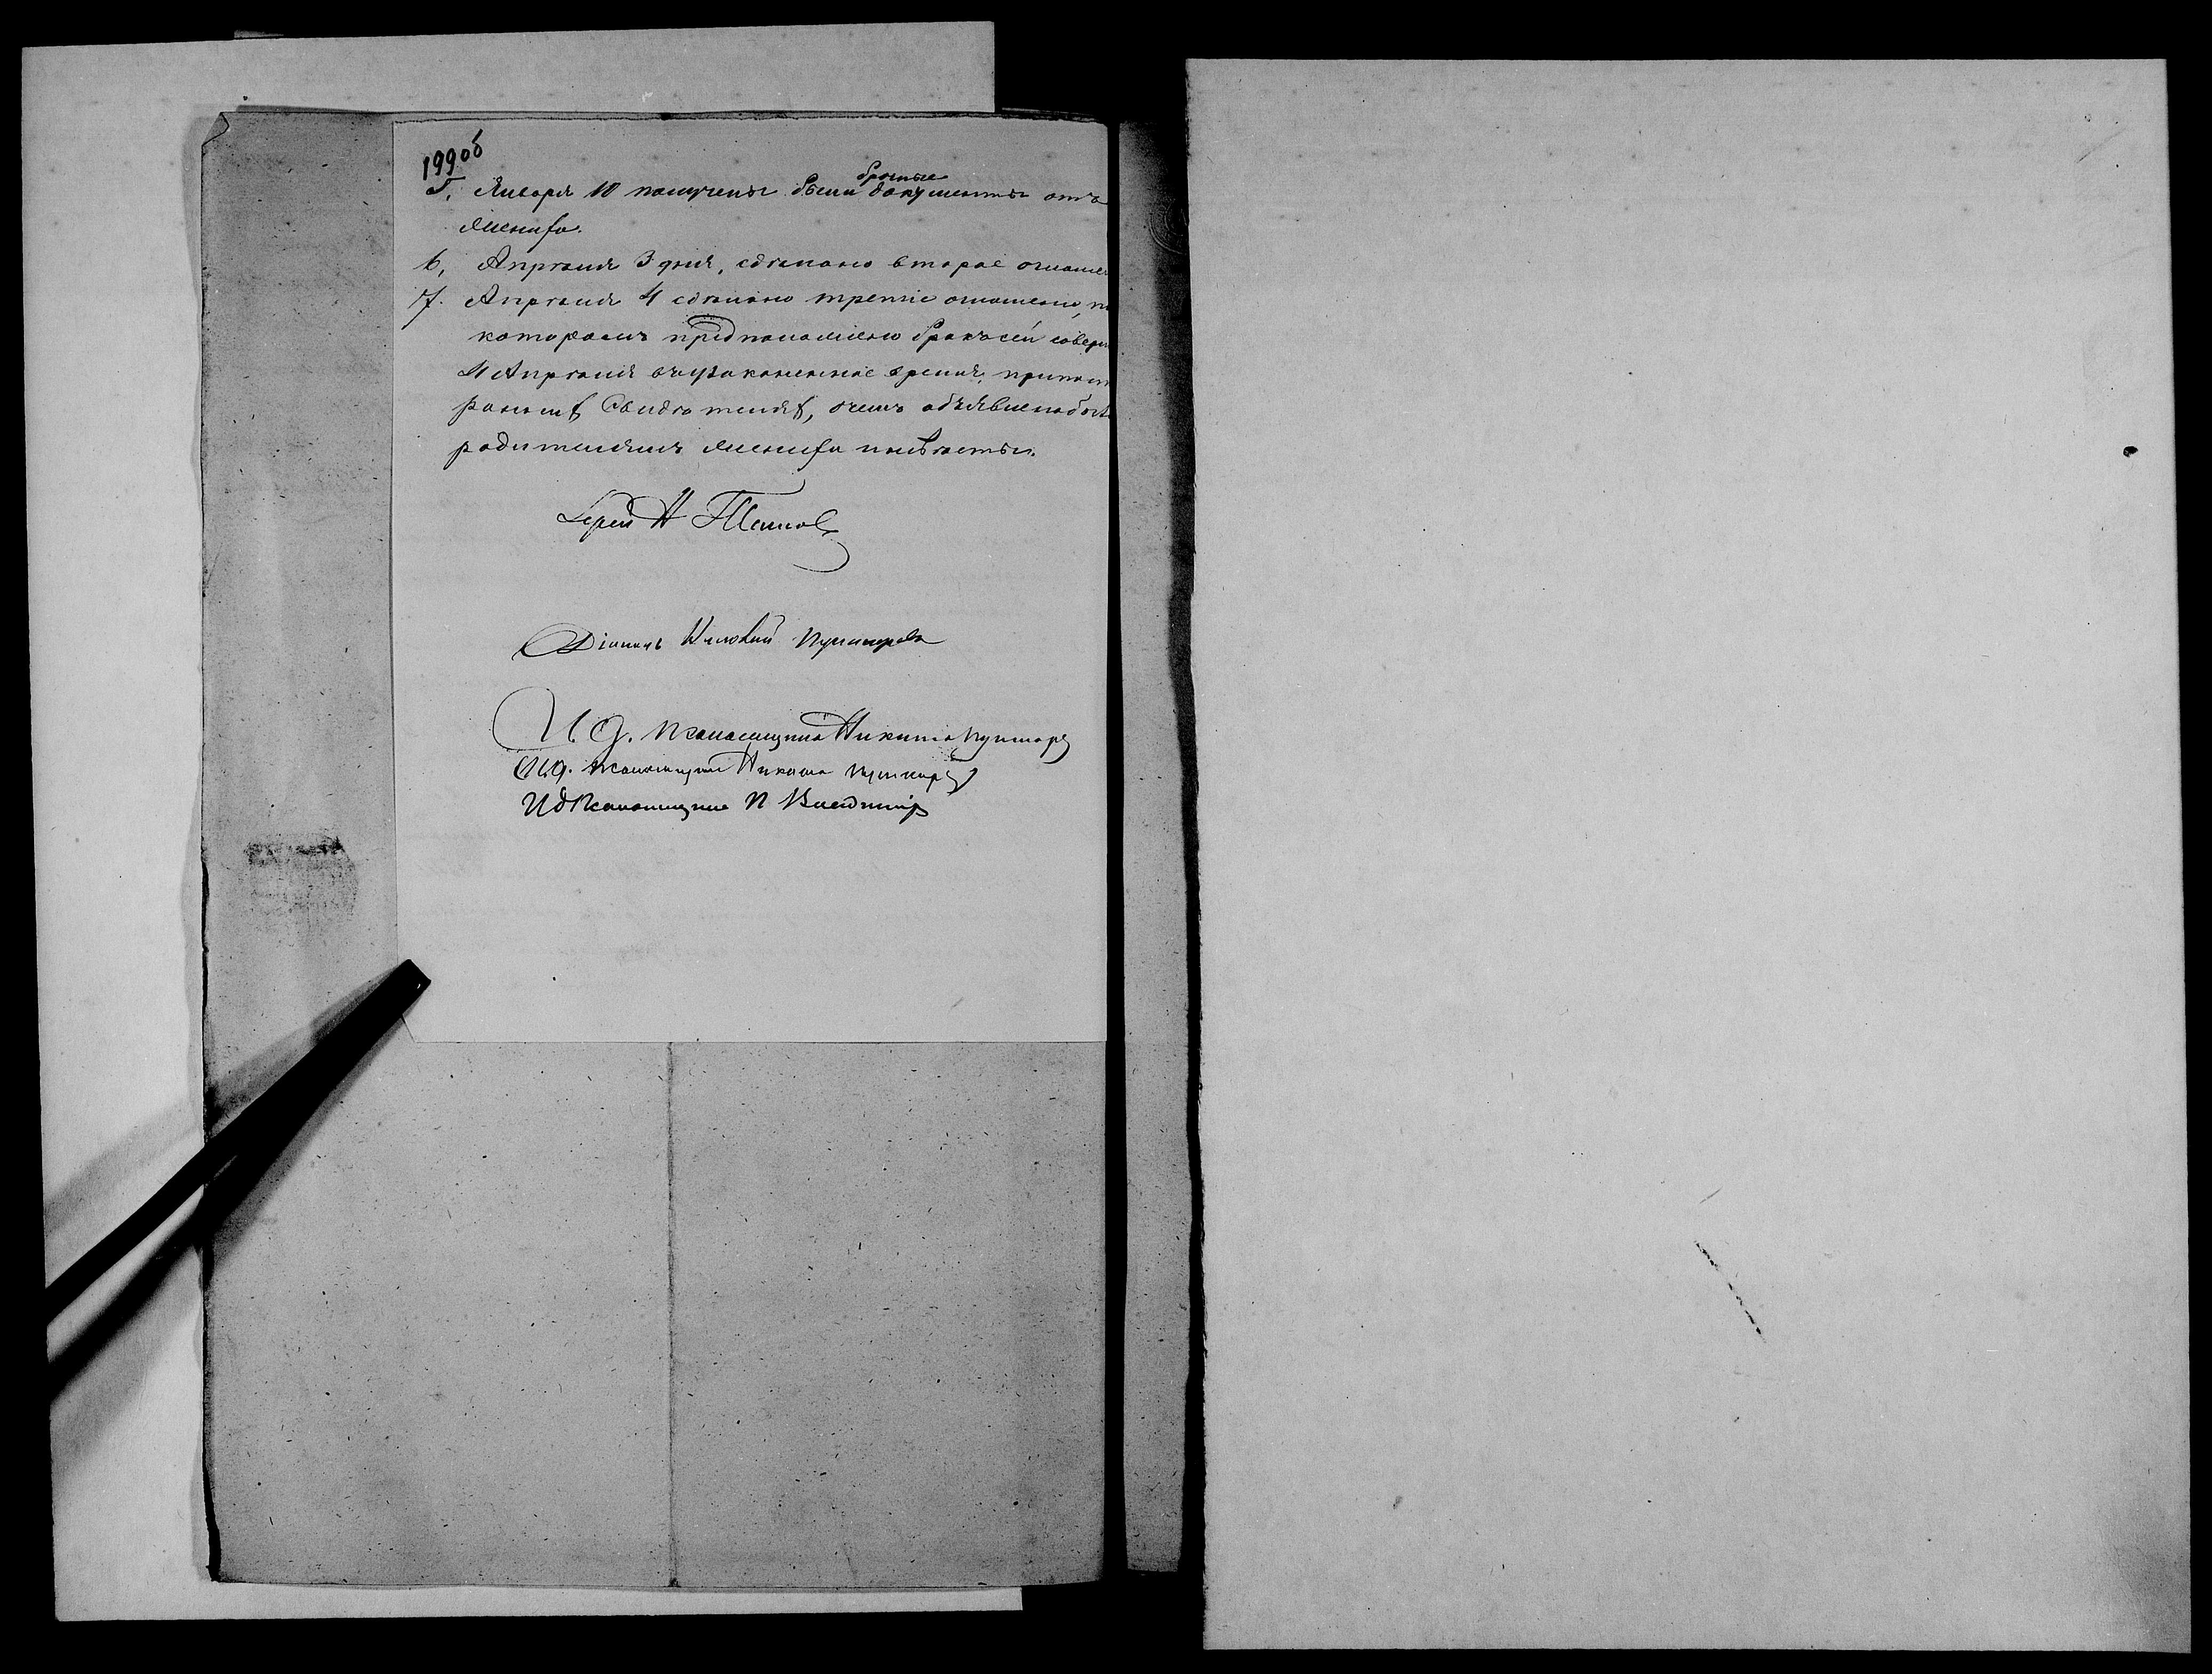 199об
брачные
5. Января 10 получены были документы отъ
жениха.
6, Апрѣля 3 дня, сдѣлано второе оглаше
7. Апрѣля 4 сдѣлано третіе оглашеніе, п
которомъ предположено бракъ сей соверш
4 Апрѣля въ узаконенное время, при
Свидѣтеляхъ, о чемъ объявлено
родителямъ жениха и невѣсты.
Іерей Н
Діаконъ Пушкарев
И. д. псаломщика Никита Пушкарев
И. д. псаломщика Никита Пушкарев
И д Псаломщика П Владимір